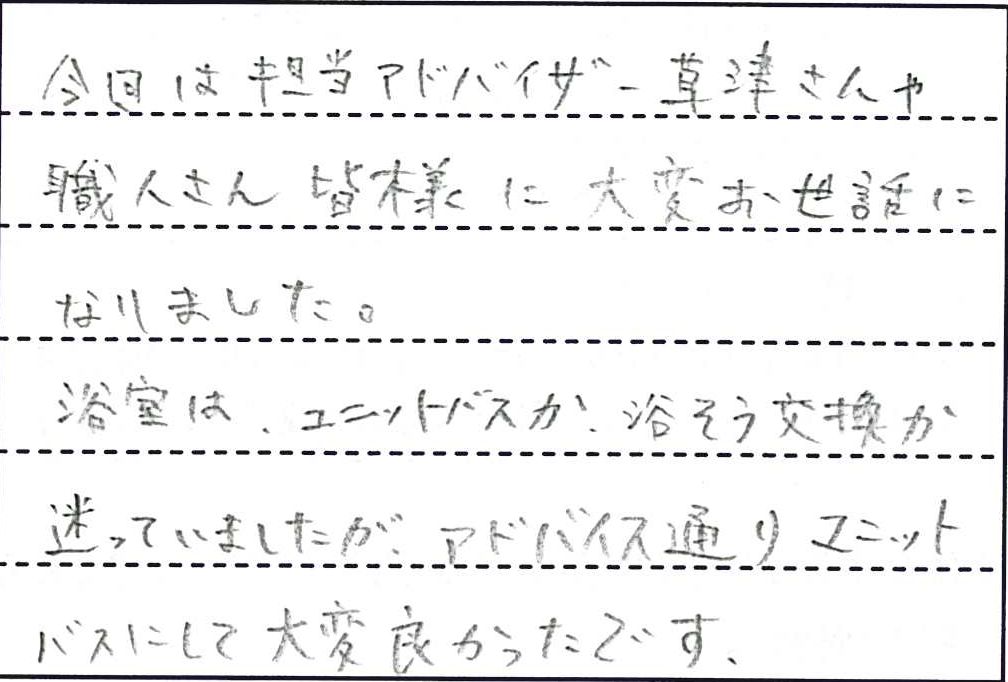 今回は担当アドバイザー草津さんや
職人さん皆様に大変お世話に
なりました。
浴室は、ユニットバスか、浴そう交換か
迷っていましたが、アドバイス通りユニット
バスにして大変良かったです、